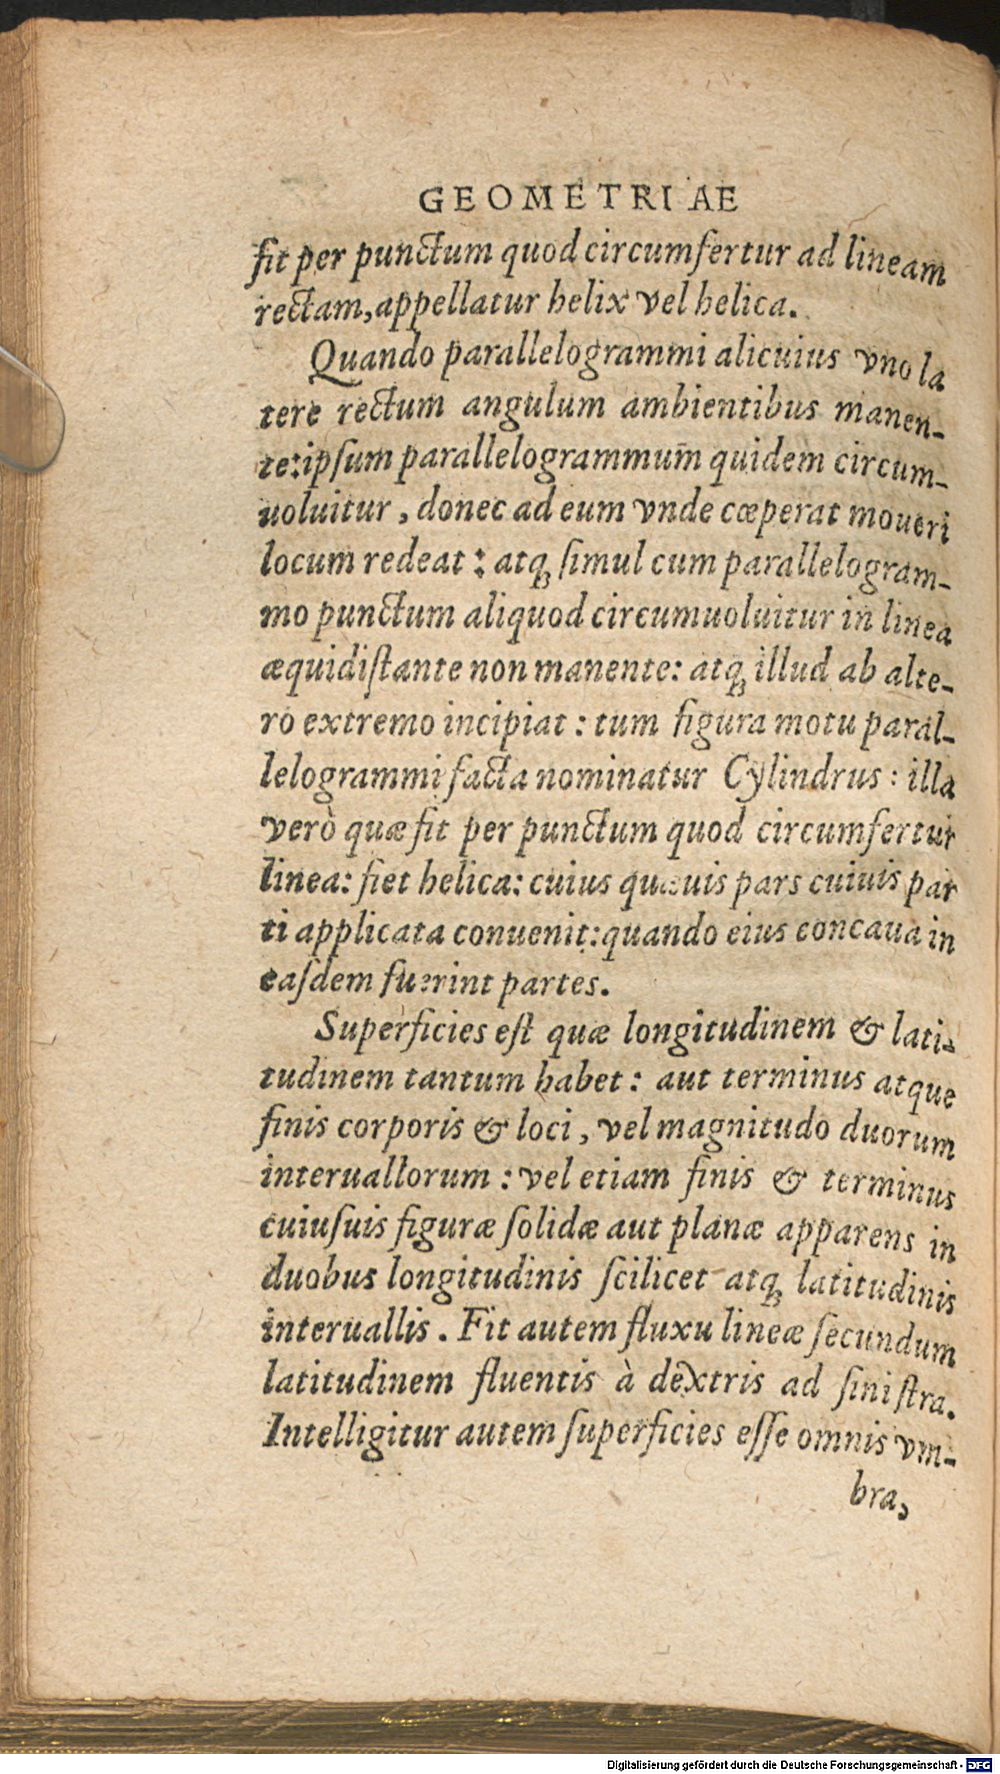 GEOMETRIAE
fit per punctum quod circumfertur ad lineam
rectam, appellatur helix vel helica.
Quando parallelogrammi alicuius vno la
tere rectum angulum ambientibus manen-
te: ipſum parallelogrammum quidem circum-
uoluitur, donec ad eum vnde cœperat moueri
locum redeat: atq; ſimul cum parallelogram-
mo punctum aliquod circumuoluitur in linea
æquidiſtante non manente: atq; illud ab alte-
ro extremo incipiat: tum figura motu paral-
lelogrammi facta nominatur Cylindrus: illa
verò quæ fit per punctum quod circumfertur
linea: fiet helica: cuius quæuis pars cuiuis par
ti applicata conuenit: quando eius concaua in
eaſdem fuerint partes.
Superficies eſt quæ longitudinem & lati-
tudinem tantum habet: aut terminus atque
finis corporis & loci, vel magnitudo duorum
interuallorum: vel etiam finis & terminus
cuiuſuis figuræ ſolidæ aut planæ apparens in
duobus longitudinis ſcilicet atq; latitudinis
interuallis. Fit autem fluxu lineæ ſecundum
latitudinem fluentis à dextris ad ſiniſtra.
Intelligitur autem ſuperficies eſſe omnis vm-
bra,
Digitalisierung gefördert durch die Deutsche Forschungsgemeinschaft - DFG